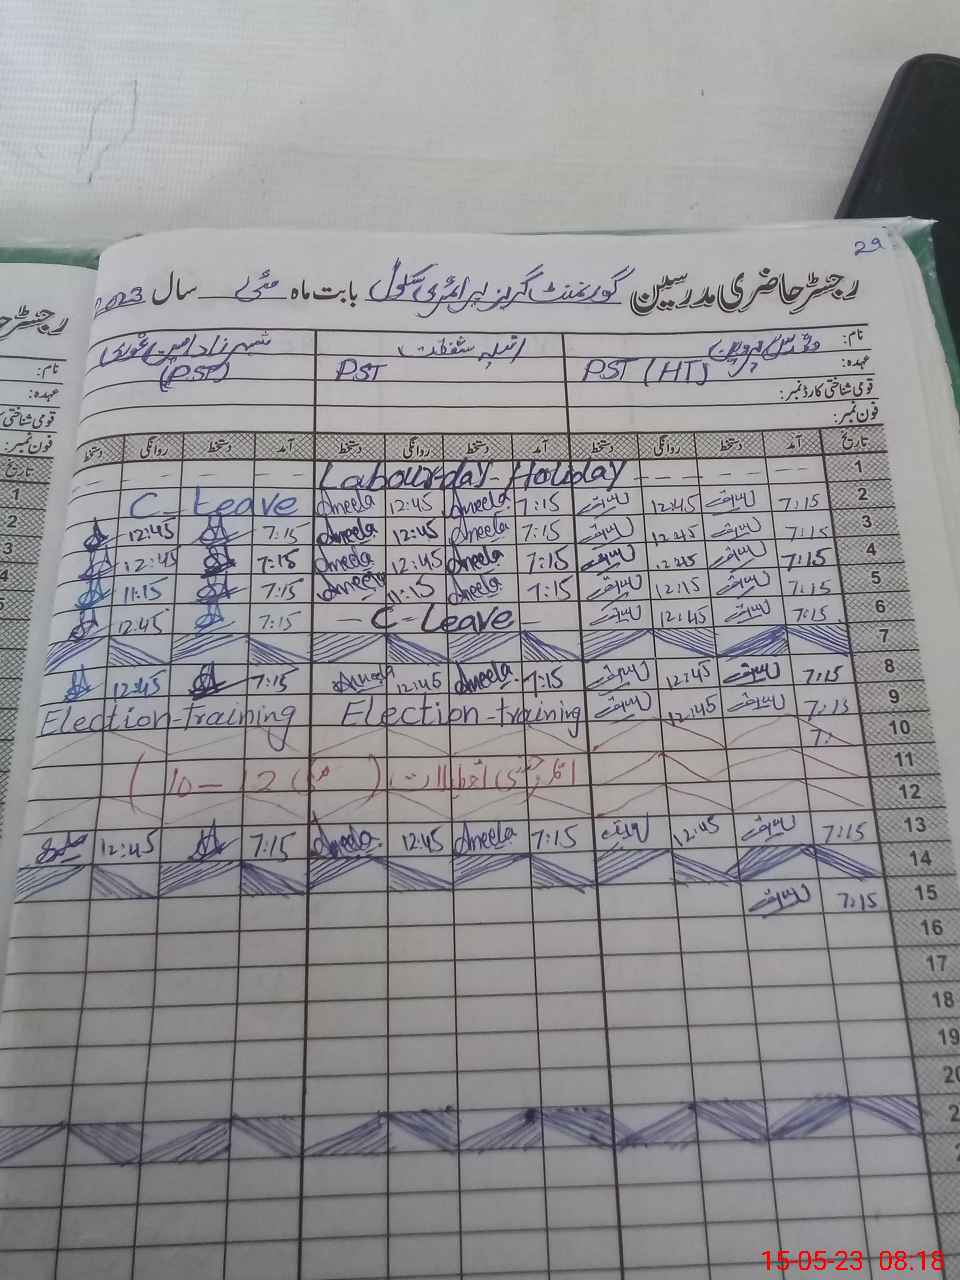 29
رجسٹر حاضری مدرسین گورنمنٹ گرلز پرائمری سکول بابت ماہ مئی سال 2023
نام: انیلہ شفقت شہرزاد امین غوری
عہدہ: PST (HT) PST (PST)
قومی شناختی کارڈ نمبر:
فون نمبر:
تاریخ آمد دستخط روانگی دستخط آمد دستخط روانگی دستخط آمد دستخط روانگی دستخط
1 Labour-day-Holiday
2 7:15 12:45 7:15 Aneela 12:45 Aneela C-Leave
3 7:15 12:45 7:15 Aneela 12:45 Aneela 7:15 12:45
4 7:15 12:45 7:15 Aneela 12:45 Aneela 7:15 12:45
5 7:15 12:15 7:15 Aneela 11:15 Aneela 7:15 11:15
6 7:15 12:45 - C-Leave - 7:15 12:45
7
8 7:15 12:45 7:15 Aneela 12:45 Aneela 7:15 12:45
9 7:15 12:45 Election-training Election-training
10 7:
11 (10-12 مئی)
12
13 7:15 12:45 7:15 Aneela 12:45 Aneela 7:15 12:45
14
15 7:15
16
17
18
19
20
رجسٹر
نام:
عہدہ:
قومی شناختی
فون نمبر:
تاریخ
1
2
3
4
15-05-23 08:18